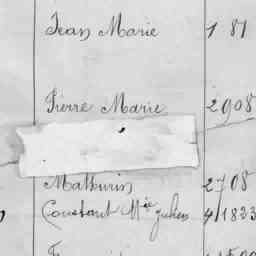 Jean Marie 1 81
Pierre Marie 2908
Mathurin 2708
Constant Mie Julien 41833